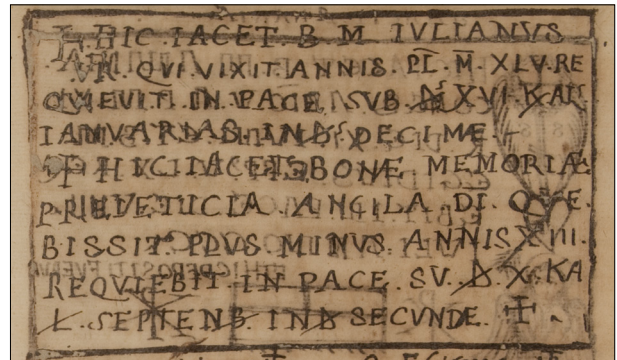 HIC . IACET . B M IVLIANVS
VR . QVI . VIXIT . ANNIS . PL . M . XLV . RE
QVIEVIT . IN . PACE . SVB . D XVI . KAL
IANVARIAS . IND DECIMÆ .
HVC IACET BONÆ . MEMORIÆ
. ANCILA . DI . QVE .
BISSIT . PLVS . MINVS . ANNIS XIII .
REQVIEBIT . IN PACE . SV . D . X . KA
L . SEPTENB . IND SECVNDE . ☩